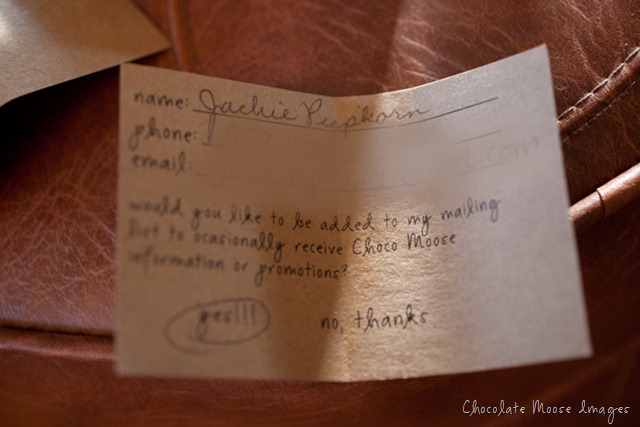 name: Jackie Piepkorn
phone:
email:
would you like to be added to my mailing
list to ocasionally receive Choco Moose
information or promotions?
yes!!! no, thanks
Chocolate Moose Images